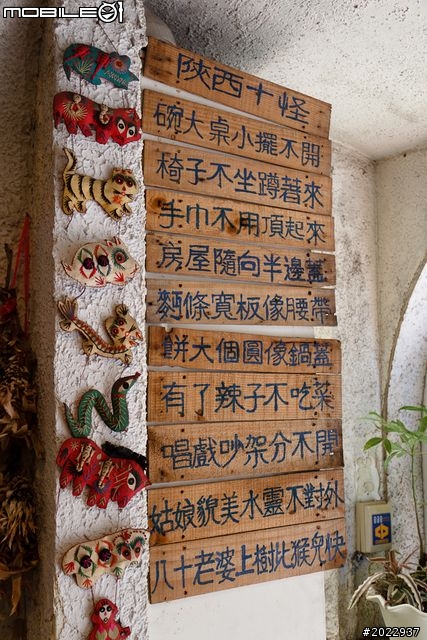 mobile01
陝西十怪
碗大桌小擺不開
椅子不坐蹲著來
手巾不用頂起來
房屋隨向半邊蓋
麵條寬板像腰帶
餅大個圓像鍋蓋
有了辣子不吃菜
唱戲吵架分不開
姑娘貌美水靈不對外
八十老婆上樹比猴兒快
#2022937